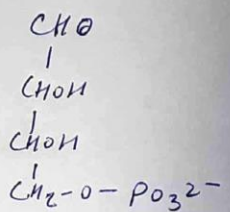 CHO
CHOH
CHOH
CH2-O-PO3 2-